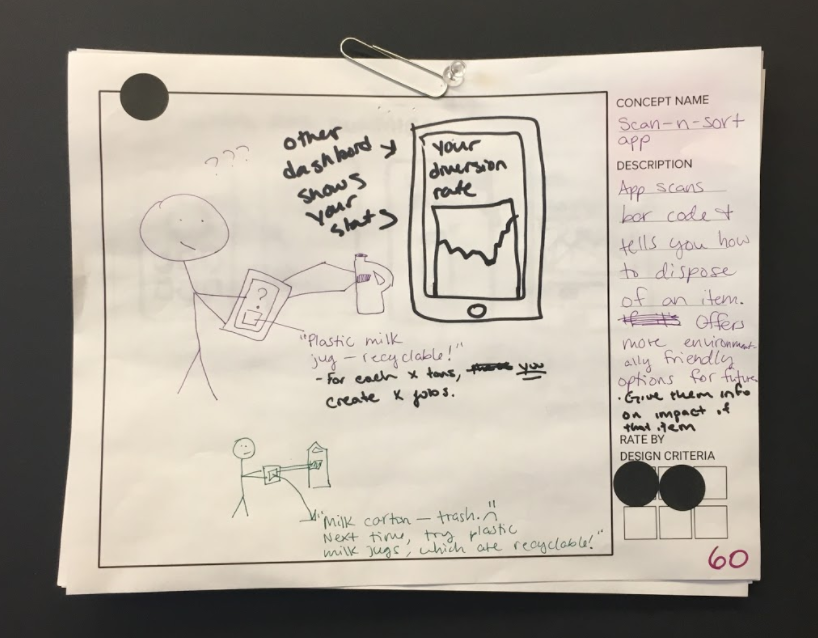 ???
other
dashbord
shows
your
stats
your
diversion
rate
?
"Plastic milk
jug – recyclable!"
- For each x tons, you
create x jobs.
"Milk carton – trash. :(
Next time, try plastic
milk jugs, which are recyclable!"
CONCEPT NAME
Scan-n-sort
app
DESCRIPTION
App scans
bar code +
tells you how
to dispose
of an item.
Offers
more environment-
ally friendly
options for future
· Give them info
on impact of
that item
RATE BY
DESIGN CRITERIA
60